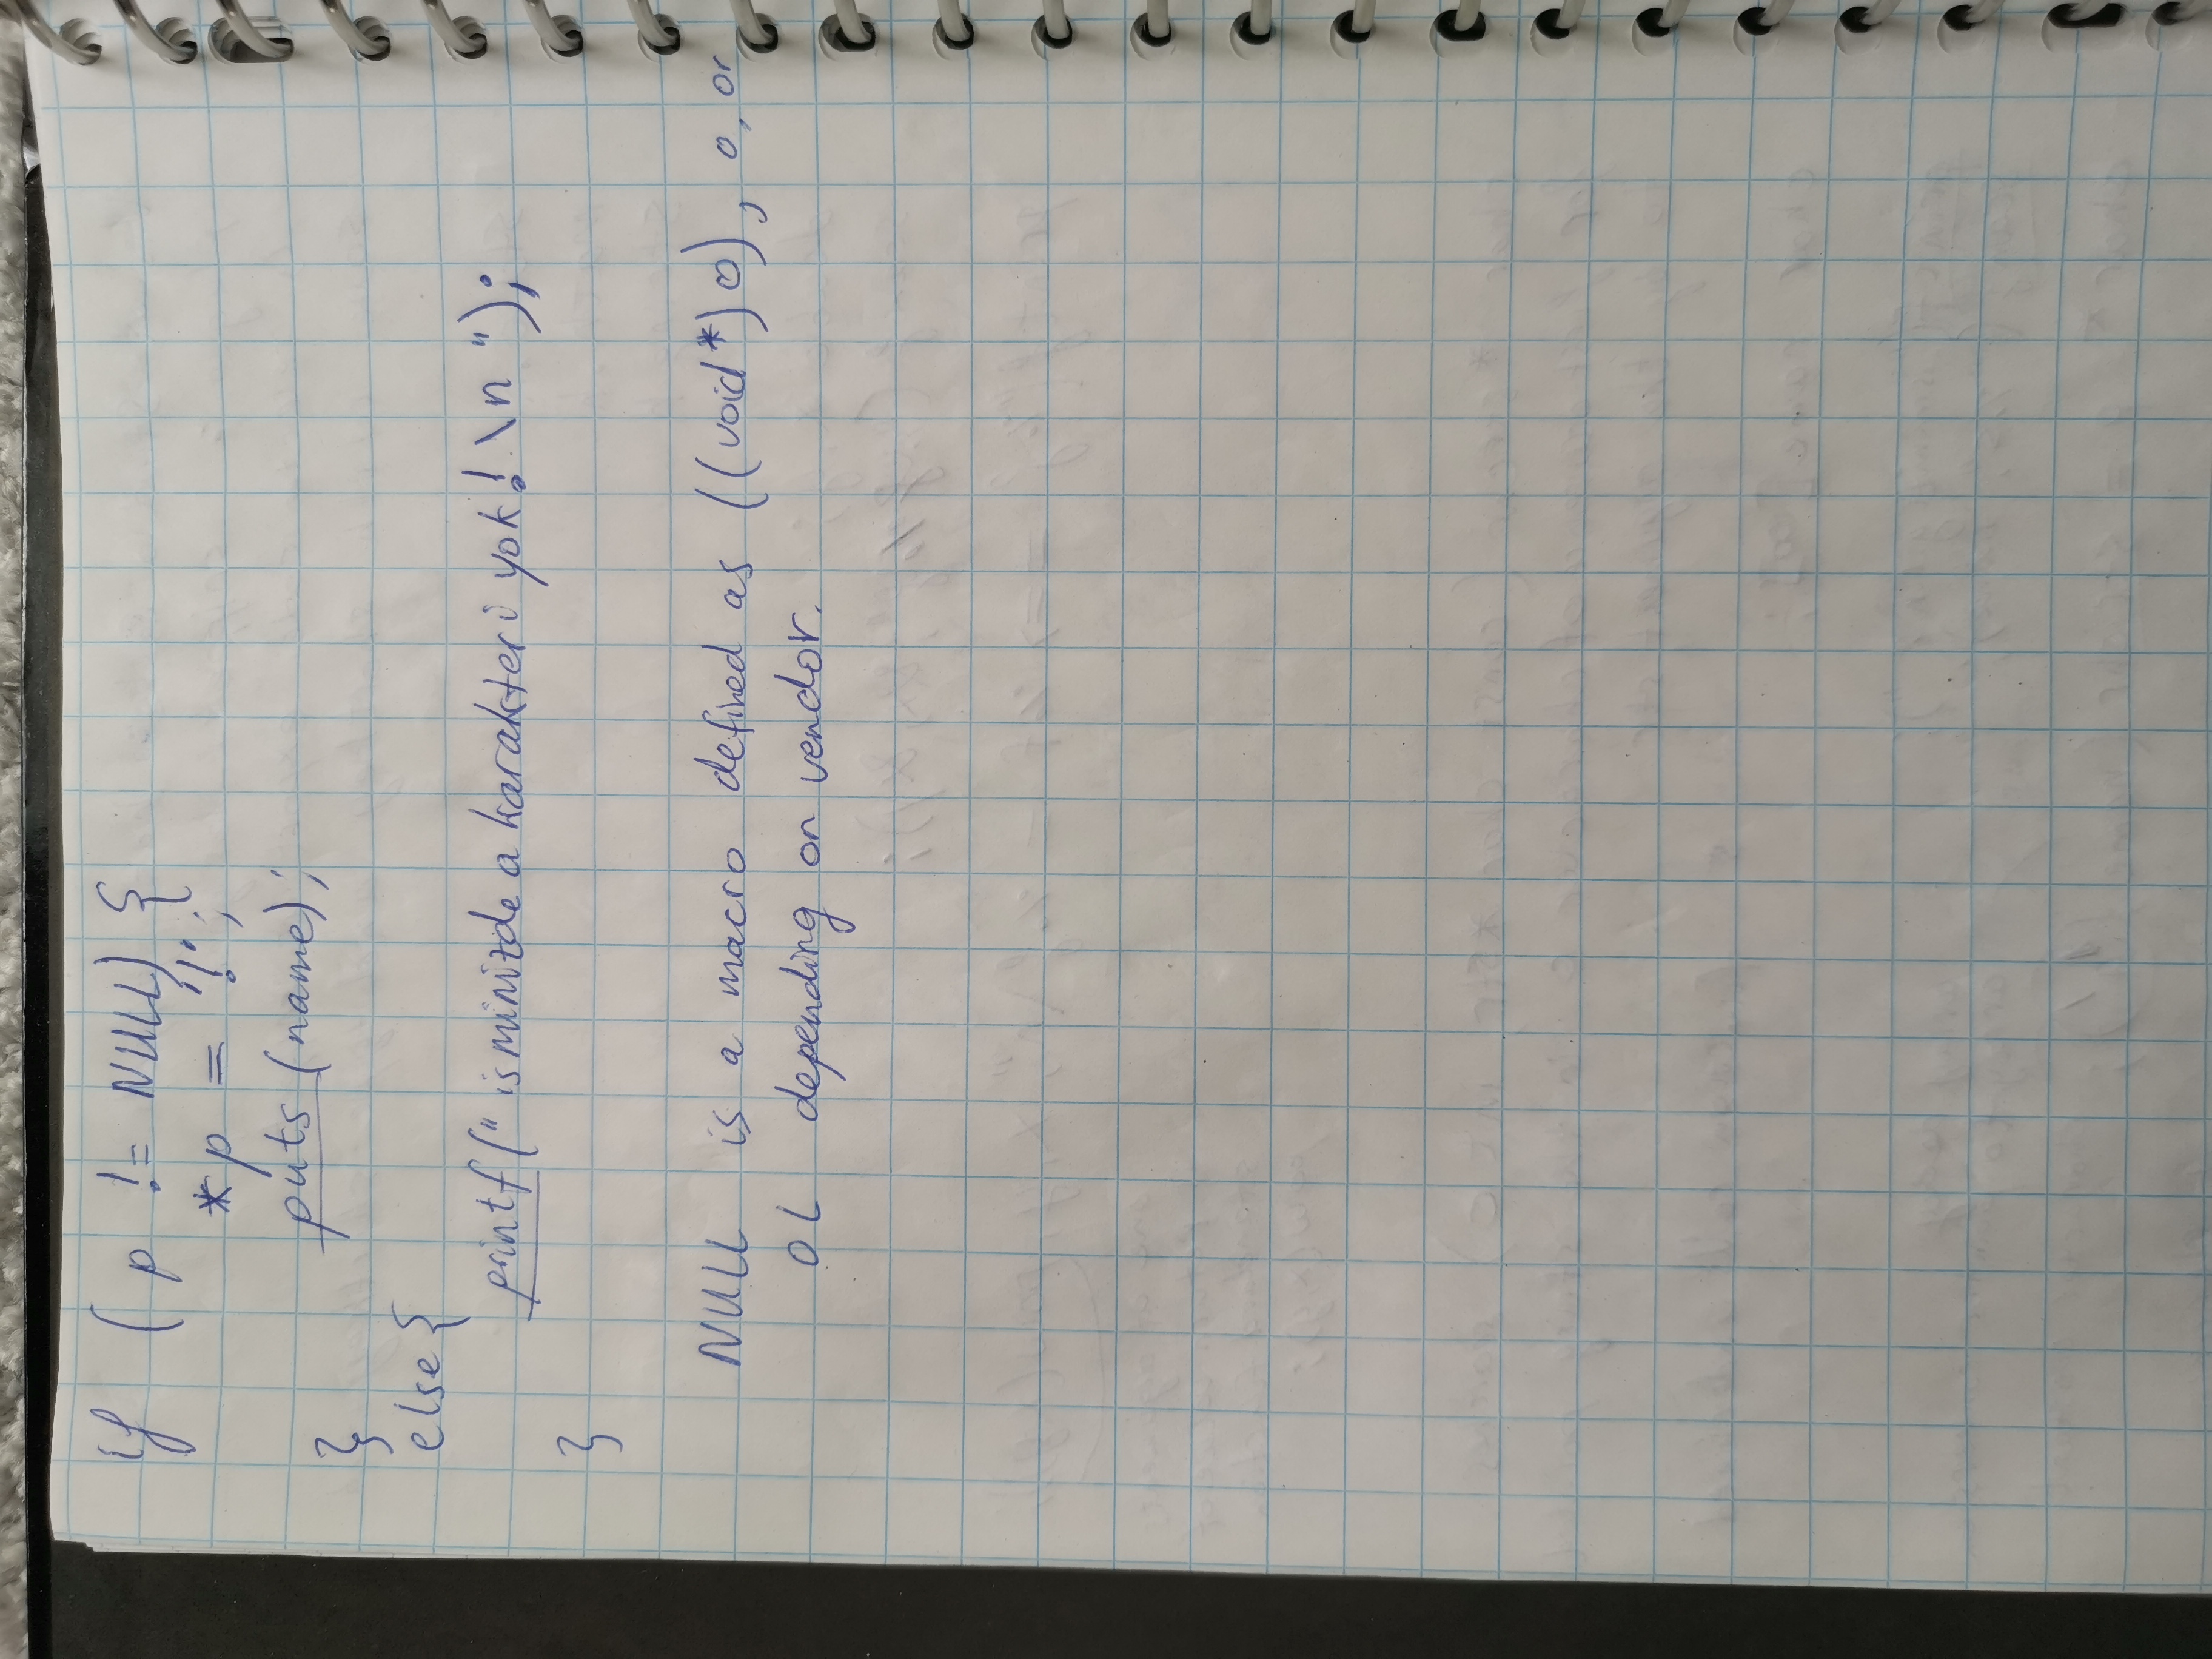 if ( p != NULL) {
*p = '!';
puts (name);
}
else {
printf (" isminizde a karakteri yok! \n ");
}
NULL is a macro defined as ((void*) 0), 0, or
0L depending on vendor.